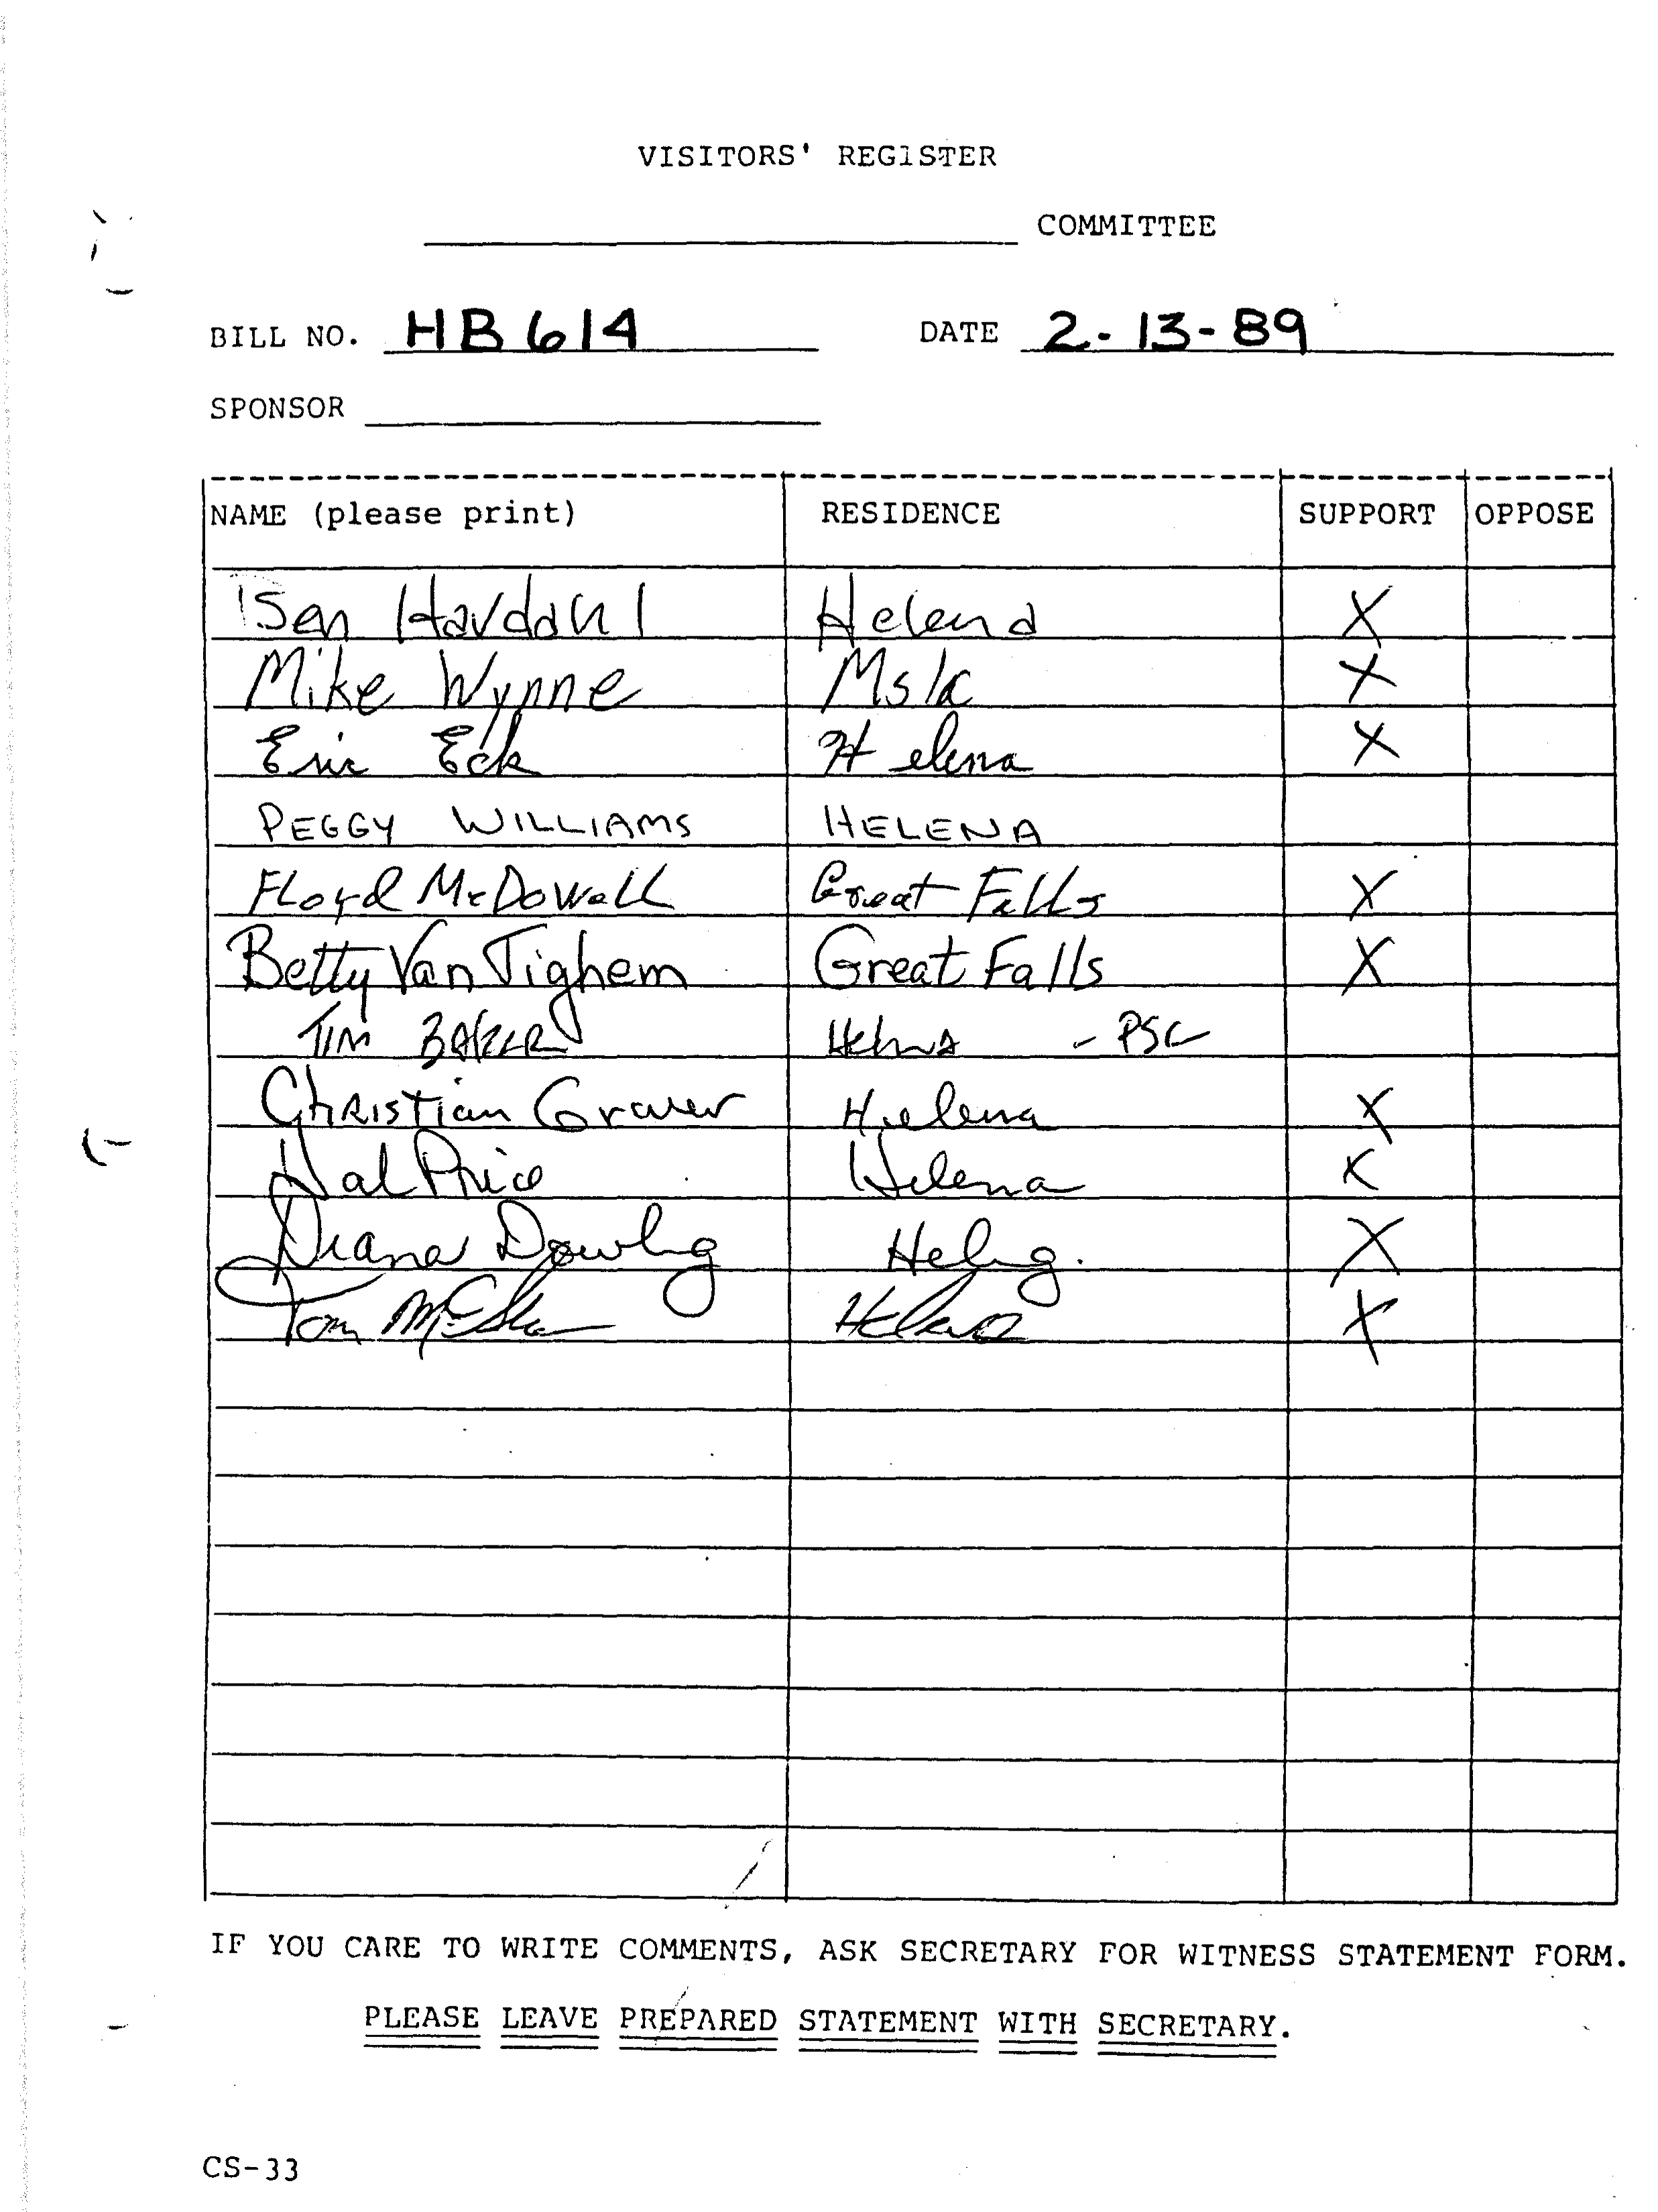 VISITORS' REGISTER
COMMITTEE
BILL NO. HB 614 DATE 2-13-89
SPONSOR
NAME (please print) RESIDENCE SUPPORT OPPOSE
Ben Havdahl Helena X
Mike Wynne Msla X
Eric Eck Helena X
PEGGY WILLIAMS HELENA
Floyd McDowell Great Falls X
Betty Van Tighem Great Falls X
TIM BAKER Helena - PSC
Christian Graver Helena X
Hal Price Helena X
Diana Dowling X
Tom Helena X
IF YOU CARE TO WRITE COMMENTS, ASK SECRETARY FOR WITNESS STATEMENT FORM.
PLEASE LEAVE PREPARED STATEMENT WITH SECRETARY.
CS-33